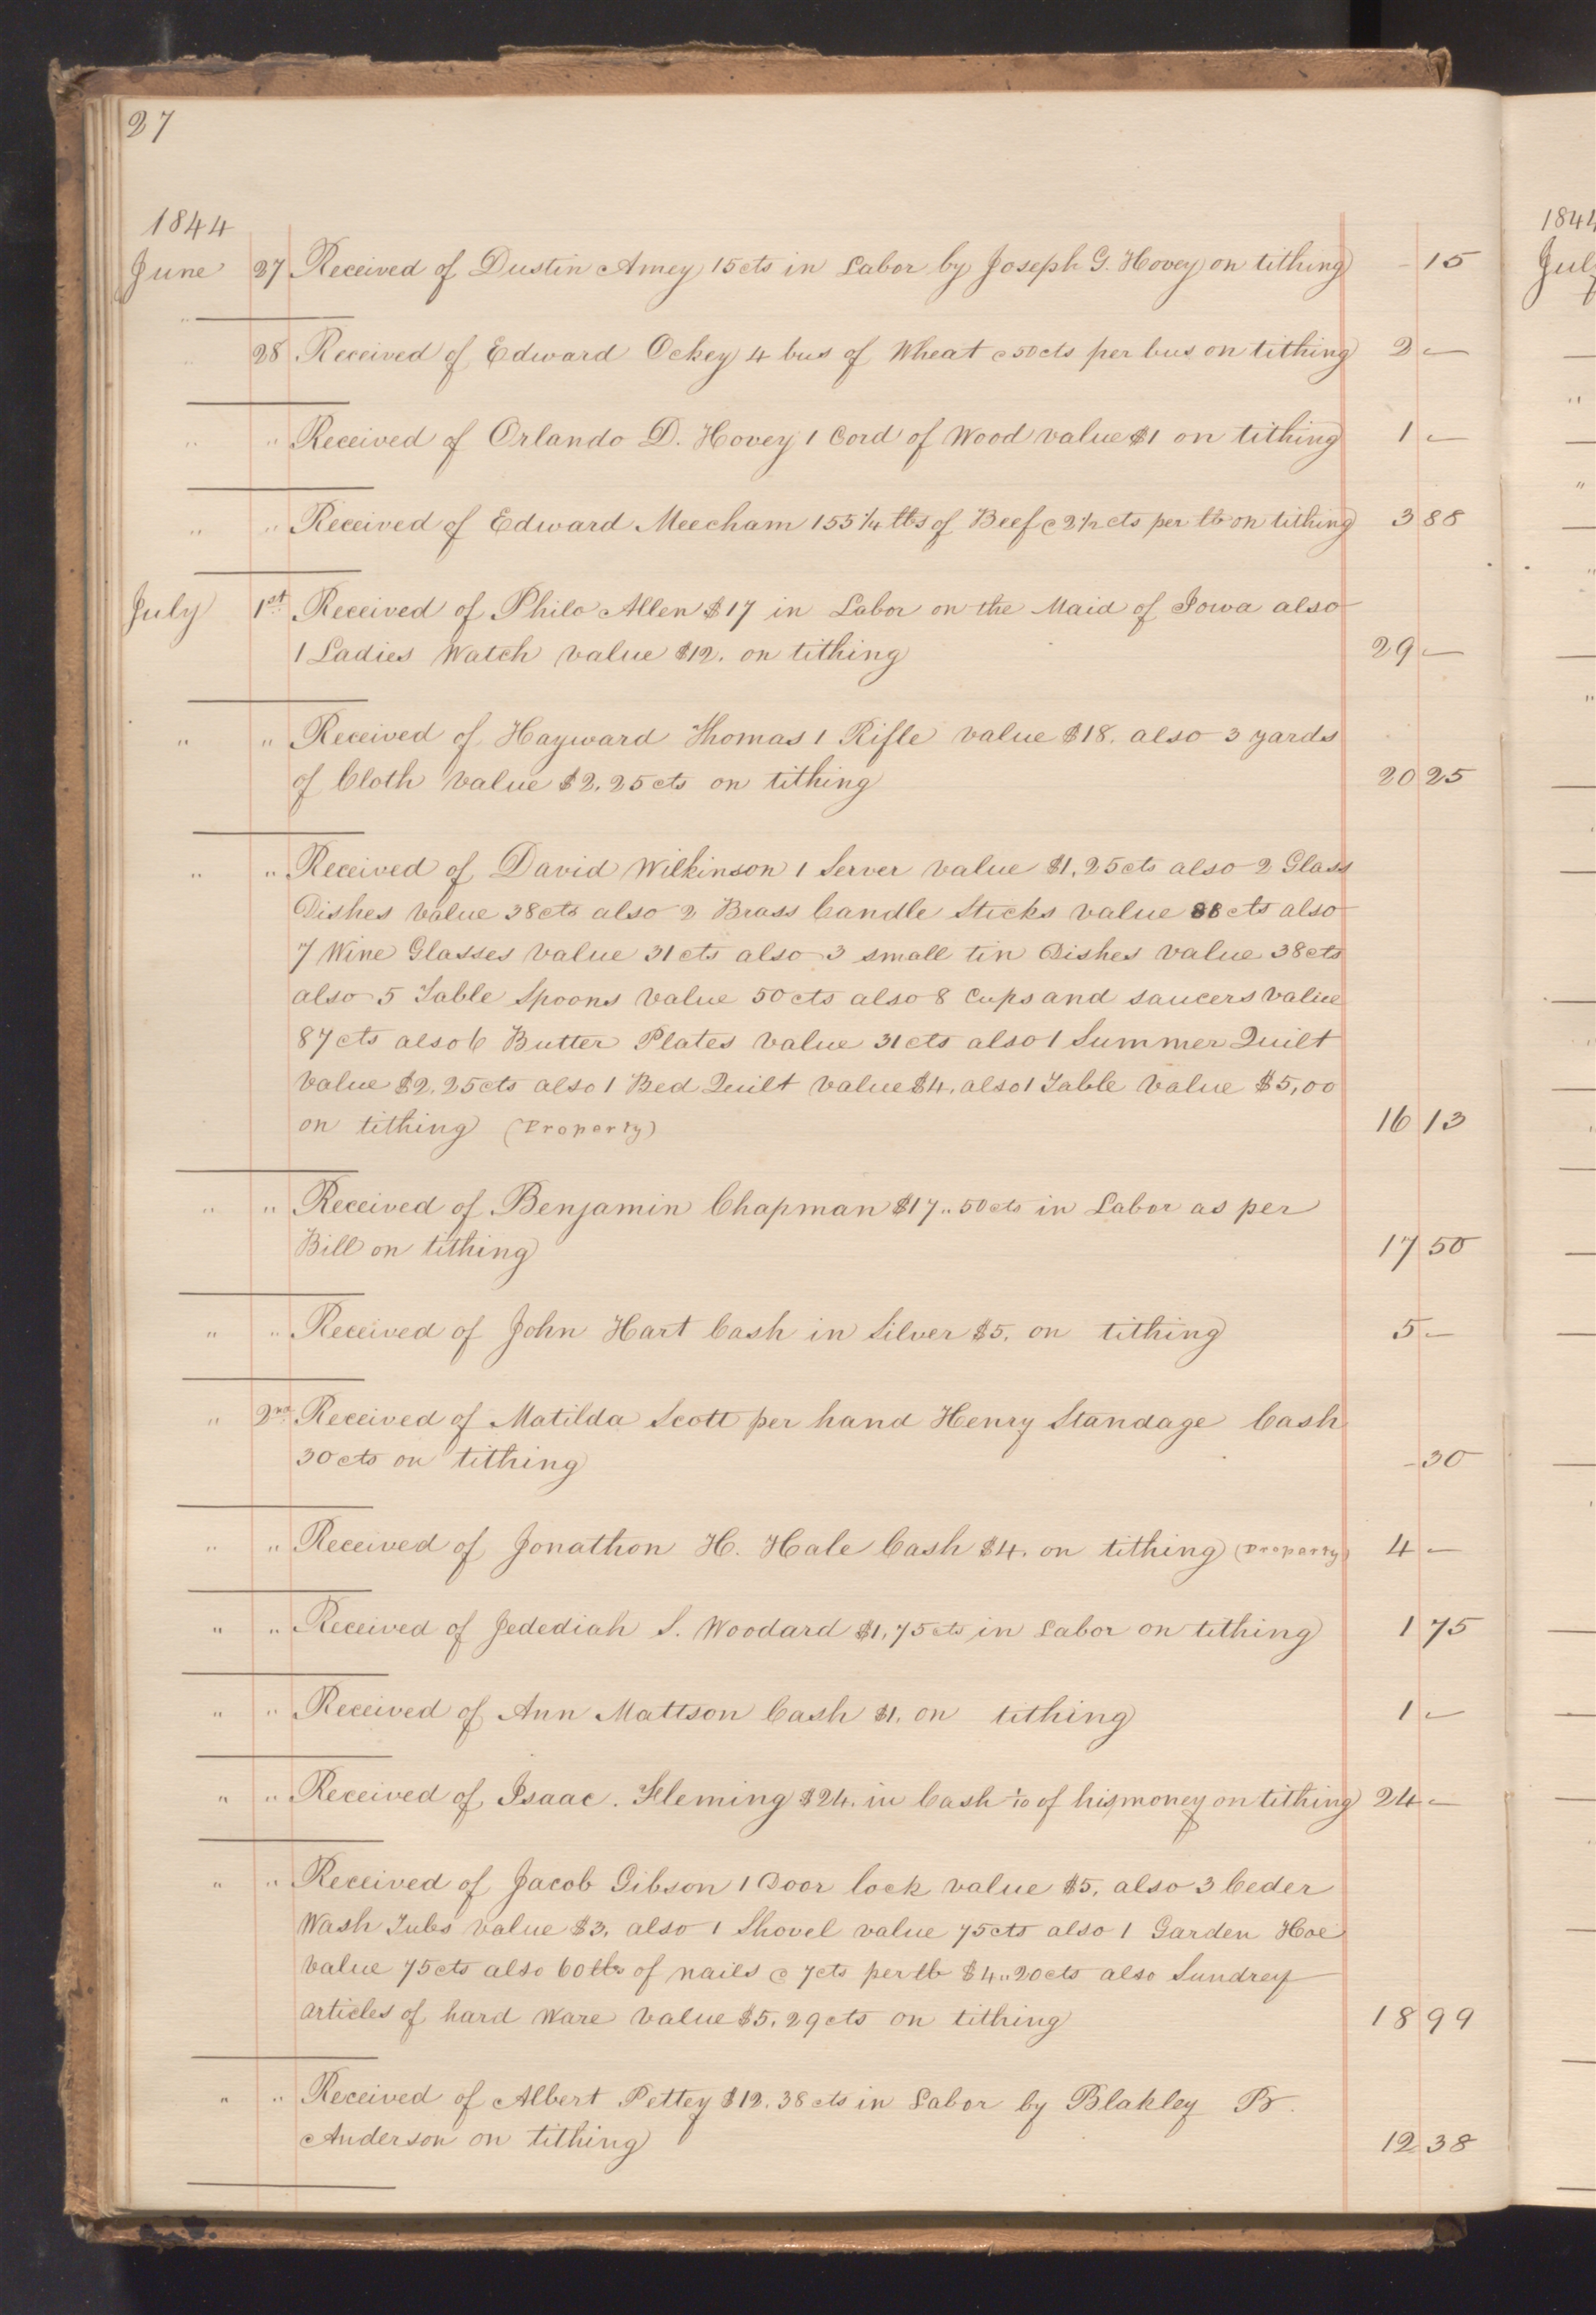 27
1844
June 27 Received of Dustin Amey 15cts in Labor by Joseph G. Hovey on tithing - 15
28 Received of Edward Ockey 4 bus of Wheat @ 50cts per bus on tithing 2 -
" " Received of Orlando D. Hovey 1 Cord of Wood value $1 on tithing 1 -
" " Received of Edward Meecham 155 1/4 lbs of Beef @ 2 1/2 cts per lb on tithing 3 88
July 1st Received of Philo Allen $17 in Labor on the Maid of Iowa also
1 Ladies Watch value $12. on tithing 29 -
" " Received of Hayward Thomas 1 Rifle value $18. also 3 yards
of Cloth value $2.25cts on tithing 20 25
" " Received of David Wilkinson 1 Server value $1,25cts also 2 Glass
Dishes value 38cts also 2 Brass Candle Sticks value 88 cts also
7 Wine Glasses value 31cts also 3 small tin Dishes value 38cts
also 5 Table Spoons value 50cts also 8 Cups and saucers value
87cts also 6 Butter Plates value 31cts also 1 Summer Quilt
value $2.25cts also 1 Bed Quilt value $4. also 1 Table value $5,00
on tithing (Property) 16 13
" " Received of Benjamin Chapman $17..50cts in Labor as per
Bill on tithing 17 50
" " Received of John Hart Cash in Silver $5. on tithing 5 -
" 2nd Received of Matilda Scott per hand Henry Standage Cash
30cts on tithing - 30
" " Received of Jonathon H. Hale Cash $4. on tithing (Property) 4 -
" " Received of Jedediah S. Woodard $1,75cts in Labor on tithing 1 75
" " Received of Ann Mattson Cash $1. on tithing 1 -
" " Received of Isaac. Fleming $24. in Cash 1/10 of his money on tithing 24 -
" " Received of Jacob Gibson 1 Door lock value $5, also 3 Ceder
Wash Tubs value $3, also 1 Shovel value 75cts also 1 Garden Hoe
value 75cts also 60 lbs of nails @ 7cts per lb $4..20cts also Sundrey
articles of hard Ware value $5.29cts on tithing 18 99
" " Received of Albert Pettey $12.38cts in Labor by Blakley B.
Anderson on tithing 12 38
1844